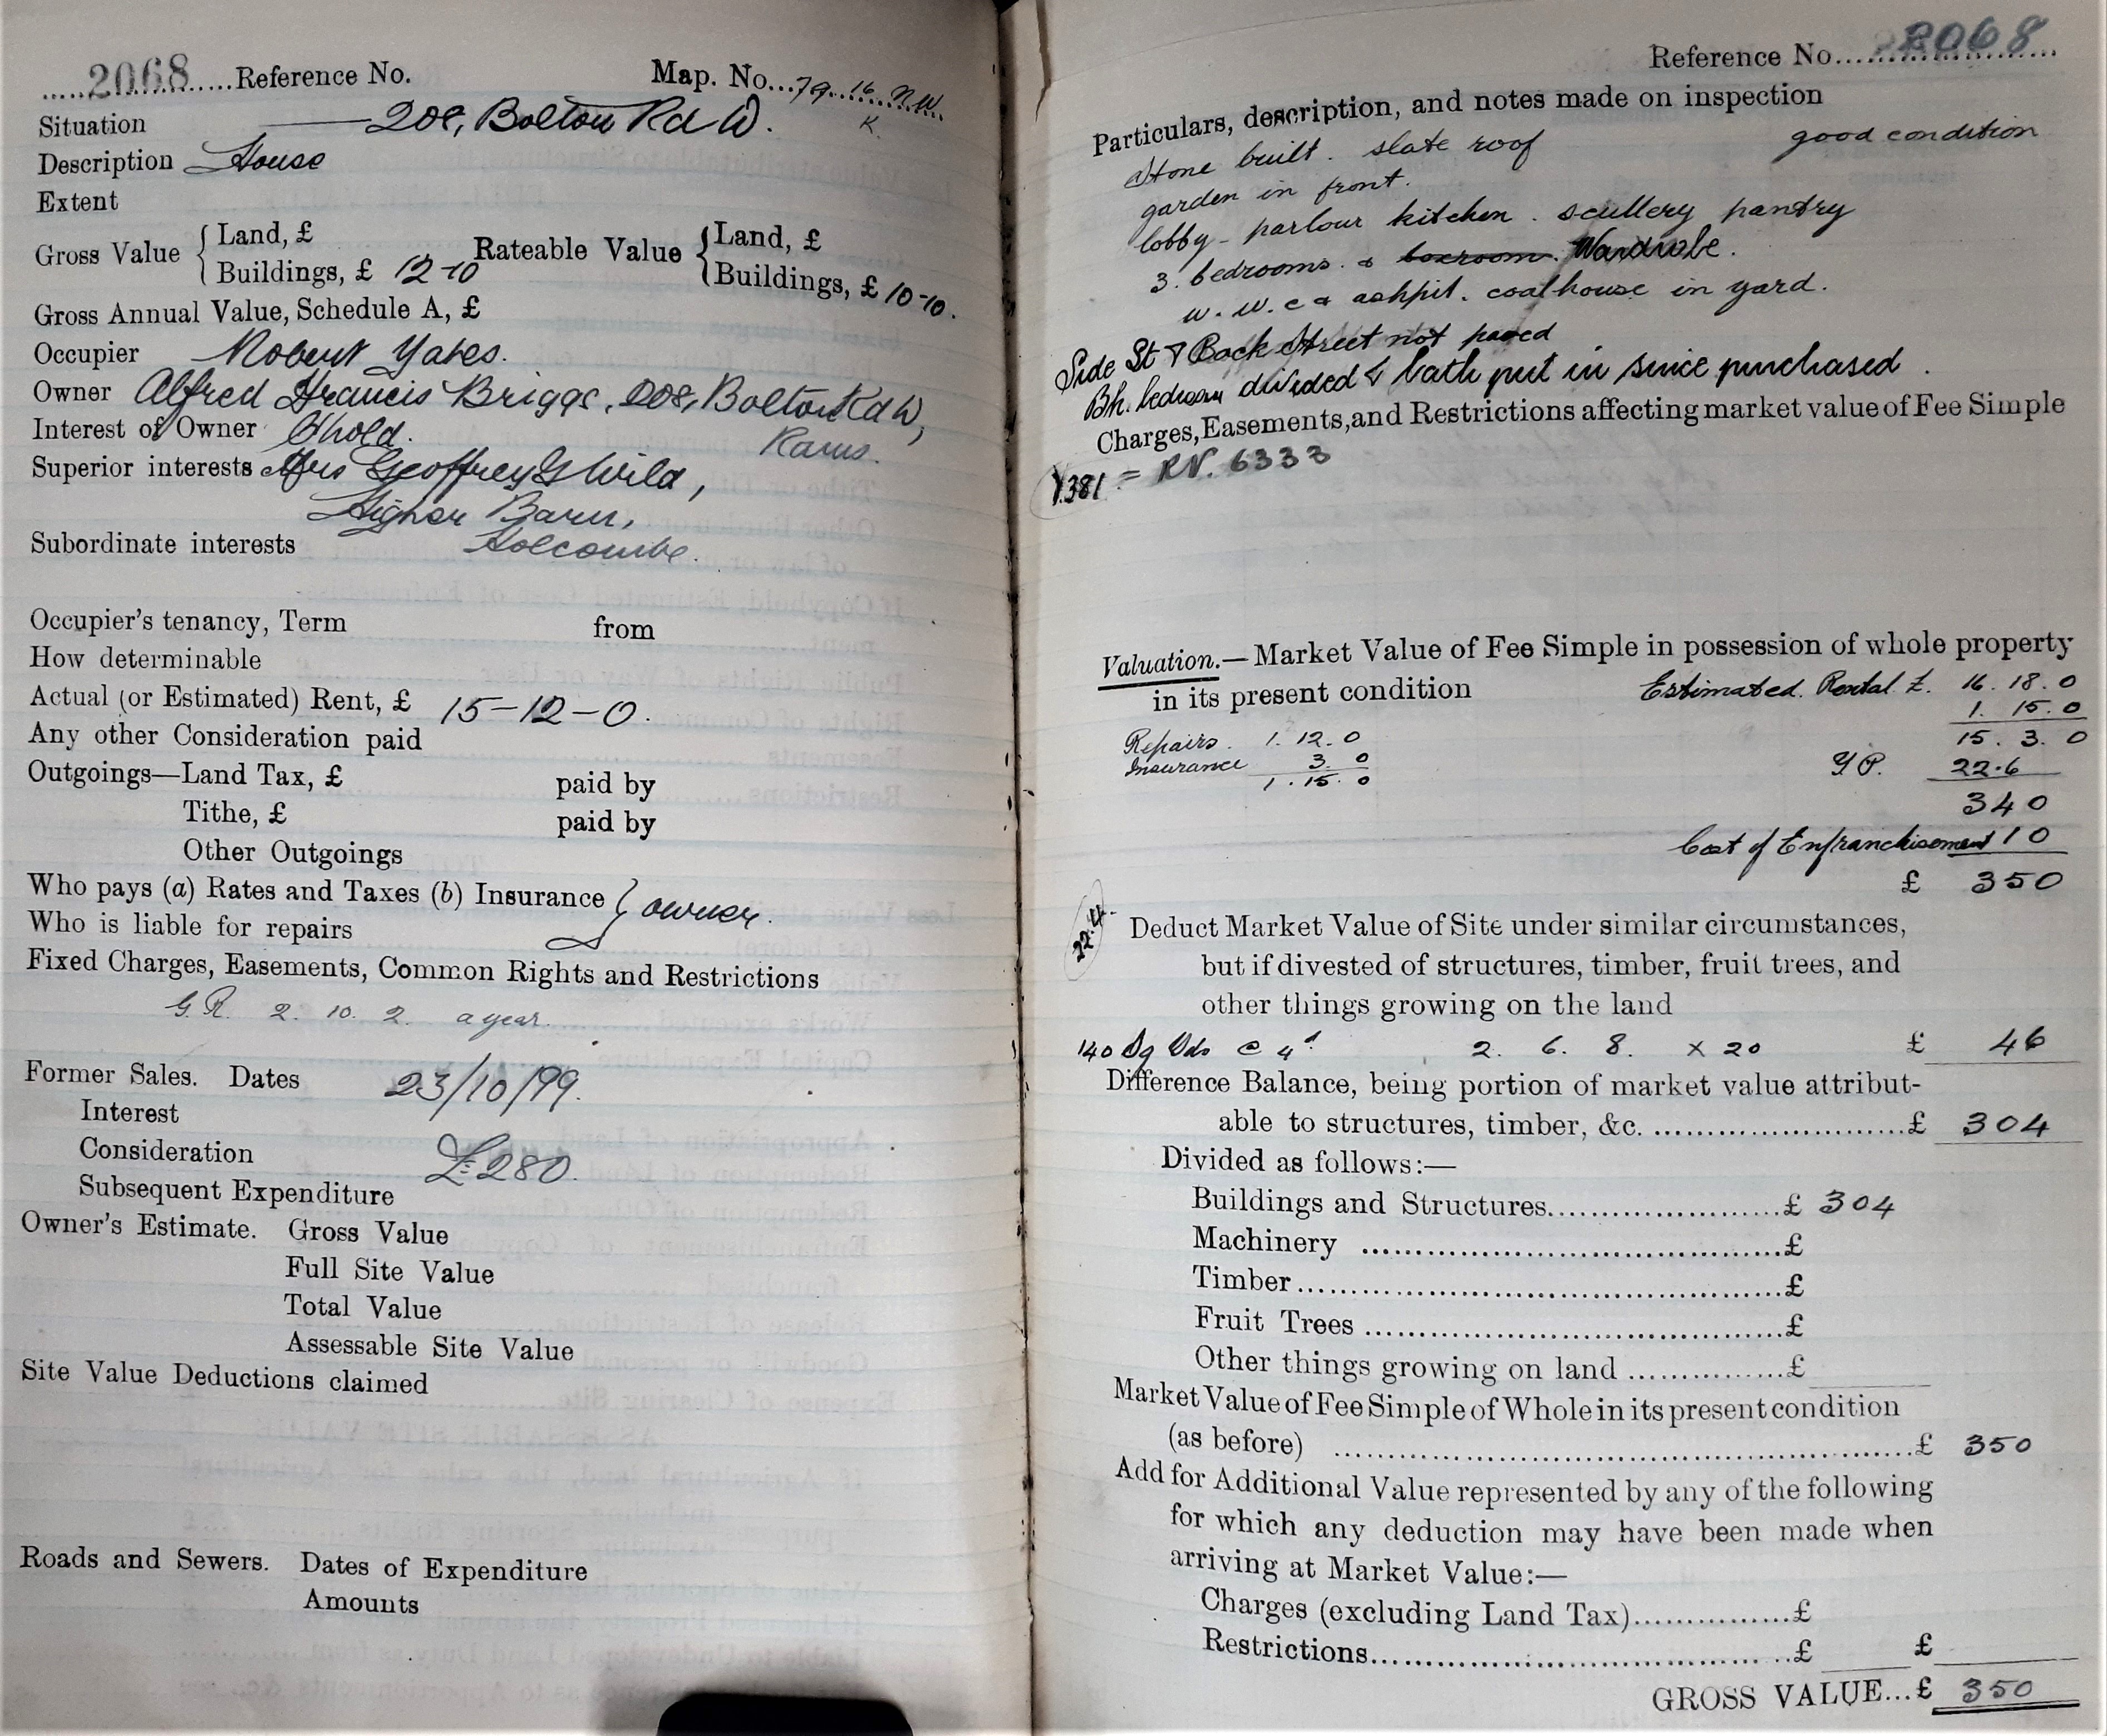 2068 Reference No. Map. No. 79. 16. N.W.
K.
Situation 208, Bolton Rd W.
Description House
Extent
Gross Value { Land, £ Rateable Value { Land, £
Buildings, £ 12-10 Buildings, £ 10-10.
Gross Annual Value, Schedule A, £
Occupier Robert Yates.
Owner Alfred Francis Briggs, 208, Bolton Rd W,
Rams.
Interest of Owner C'hold.
Superior interests Mrs Geoffrey G Wild,
Higher Barn,
Subordinate interests Holcombe.
Occupier's tenancy, Term from
How determinable
Actual (or Estimated) Rent, £ 15-12-0.
Any other Consideration paid
Outgoings—Land Tax, £ paid by
Tithe, £ paid by
Other Outgoings
Who pays (a) Rates and Taxes (b) Insurance } owner.
Who is liable for repairs
Fixed Charges, Easements, Common Rights and Restrictions
G.R. 2. 10. 2. a year.
Former Sales. Dates 23/10/99.
Interest
Consideration £280.
Subsequent Expenditure
Owner's Estimate. Gross Value
Full Site Value
Total Value
Assessable Site Value
Site Value Deductions claimed
Roads and Sewers. Dates of Expenditure
Amounts
Reference No. 2068
Particulars, description, and notes made on inspection
Stone built. slate roof good condition
garden in front.
lobby - parlour kitchen. scullery pantry
3. bedrooms. & boxroom. Wardrobe.
w. w. c & ashpit. coalhouse in yard.
Side St & Back Street not paved
Bk. bedroom divided & bath put in since purchased.
Charges, Easements, and Restrictions affecting market value of Fee Simple
Y.381 = RN. 6333
Valuation.—Market Value of Fee Simple in possession of whole property
in its present condition Estimated Rental £. 16. 18. 0
1. 15. 0
Repairs. 1. 12. 0 15. 3. 0
Insurance 3. 0 Y.P. 22.6
1. 15. 0
340
Cost of Enfranchisement 10
£ 350
22.4.
Deduct Market Value of Site under similar circumstances,
but if divested of structures, timber, fruit trees, and
other things growing on the land
140 Sq Yds @ 4d 2. 6. 8. x 20 £ 46
Difference Balance, being portion of market value attribut-
able to structures, timber, &c. £ 304
Divided as follows:—
Buildings and Structures £ 304
Machinery £
Timber £
Fruit Trees £
Other things growing on land £
Market Value of Fee Simple of Whole in its present condition
(as before) £ 350
Add for Additional Value represented by any of the following
for which any deduction may have been made when
arriving at Market Value:—
Charges (excluding Land Tax) £
Restrictions £ £
GROSS VALUE...£ 350